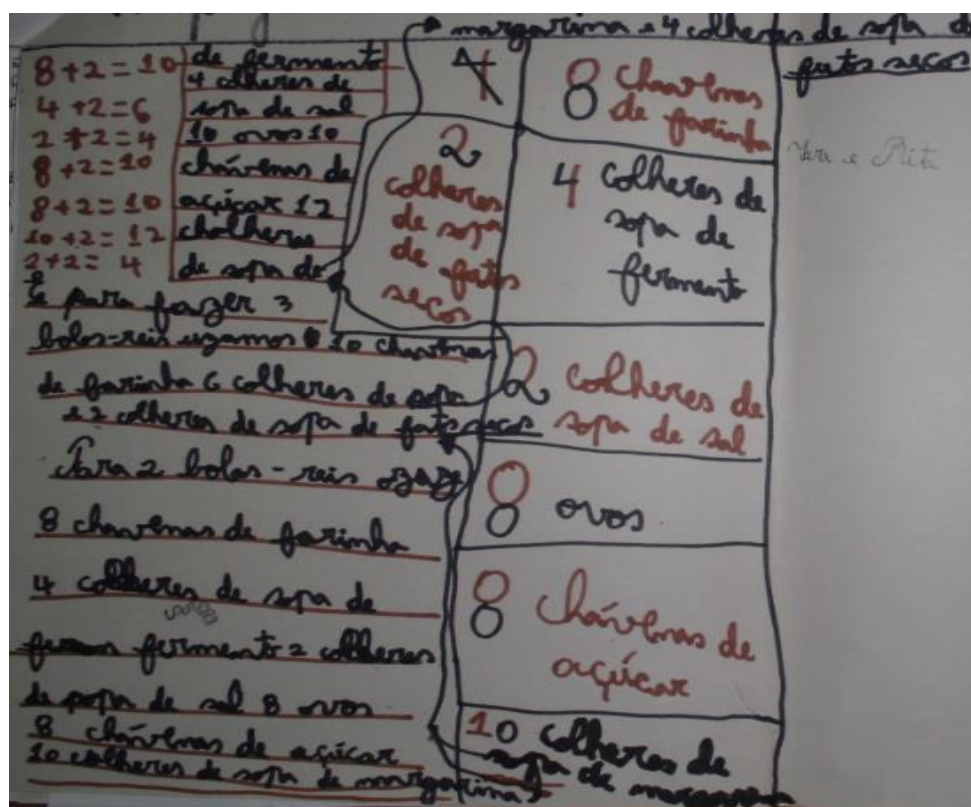 margarina e 4 colheres de sopa de
frutos secos
8+2=10
4+2=6
2+2=4
8+2=10
8+2=10
10+2=12
2+2=4
de fermento
4 colheres de
sopa de sal
10 ovos 10
chávenas de
açúcar 12
colheres
de sopa de
8 chavenas
de farinha
2
colheres
de sopa
de fatos
secos
4 colheres de
sopa de
fermento
2 colheres de
sopa de sal
8 ovos
8 chávenas de
açúcar
10 colheres de
sopa de margarina
Vera e Rita
e para fazer 3
bolos-reis uzamos 10 chavenas
de farinha 6 colheres de sopa
e 2 colheres de sopa de fatos secos
Para 2 bolos-reis
8 chavenas de farinha
4 colheres de sopa de
fermento 2 colheres
de sopa de sal 8 ovos
8 chávenas de açúcar
10 colheres de sopa de margarina